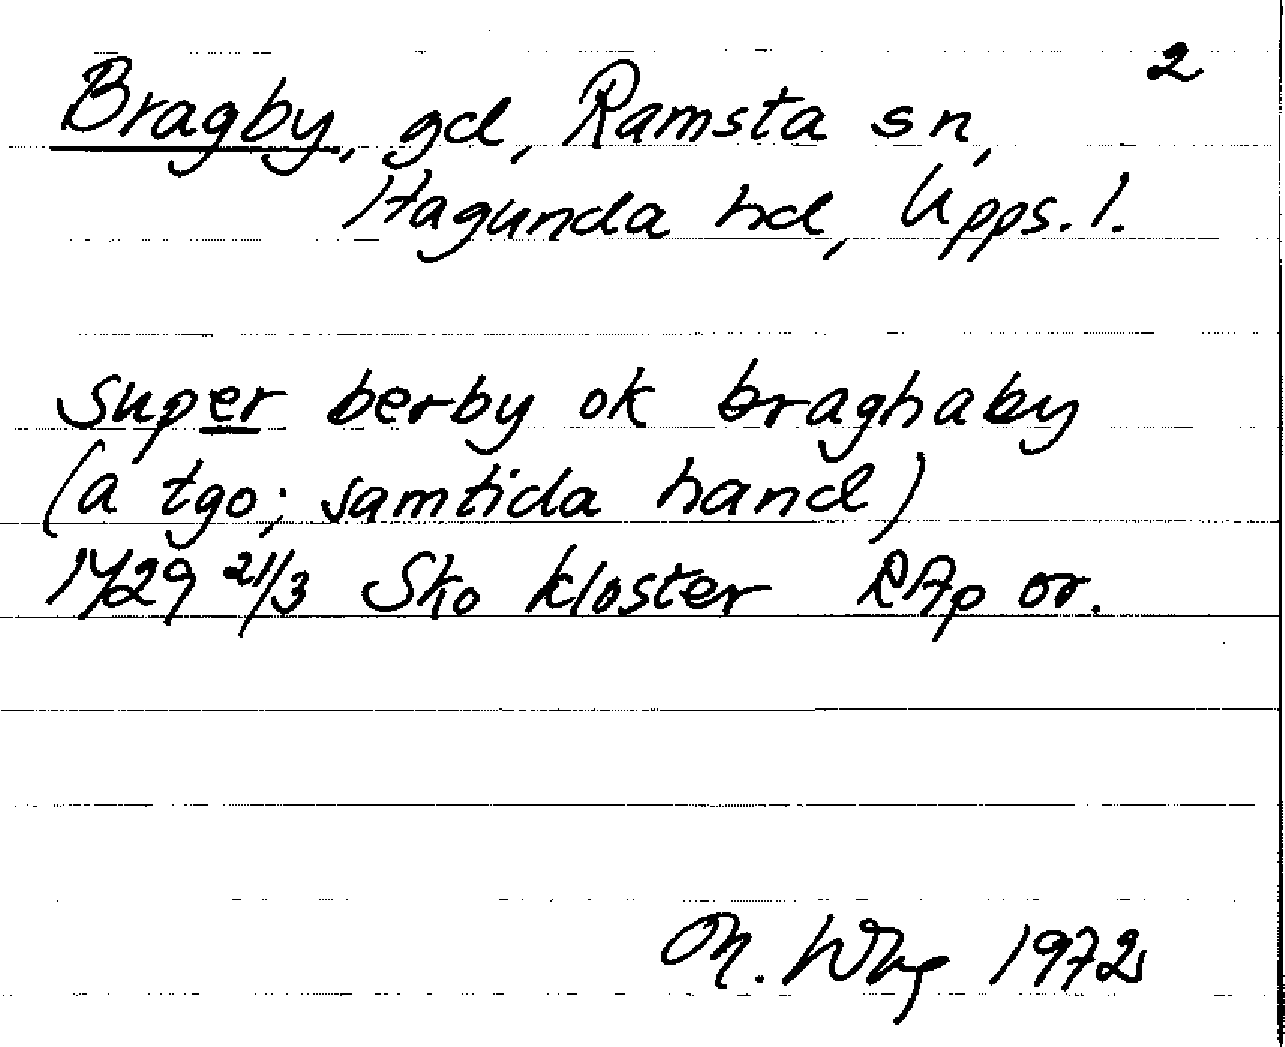 2
Bragby, gd, Ramsta sn,
Hagunda hd, Upps. l.
super berby ok braghaby
(a tgo; samtida hand)
1429 21/3 Sko kloster RAp or.
M. Wbg 1972